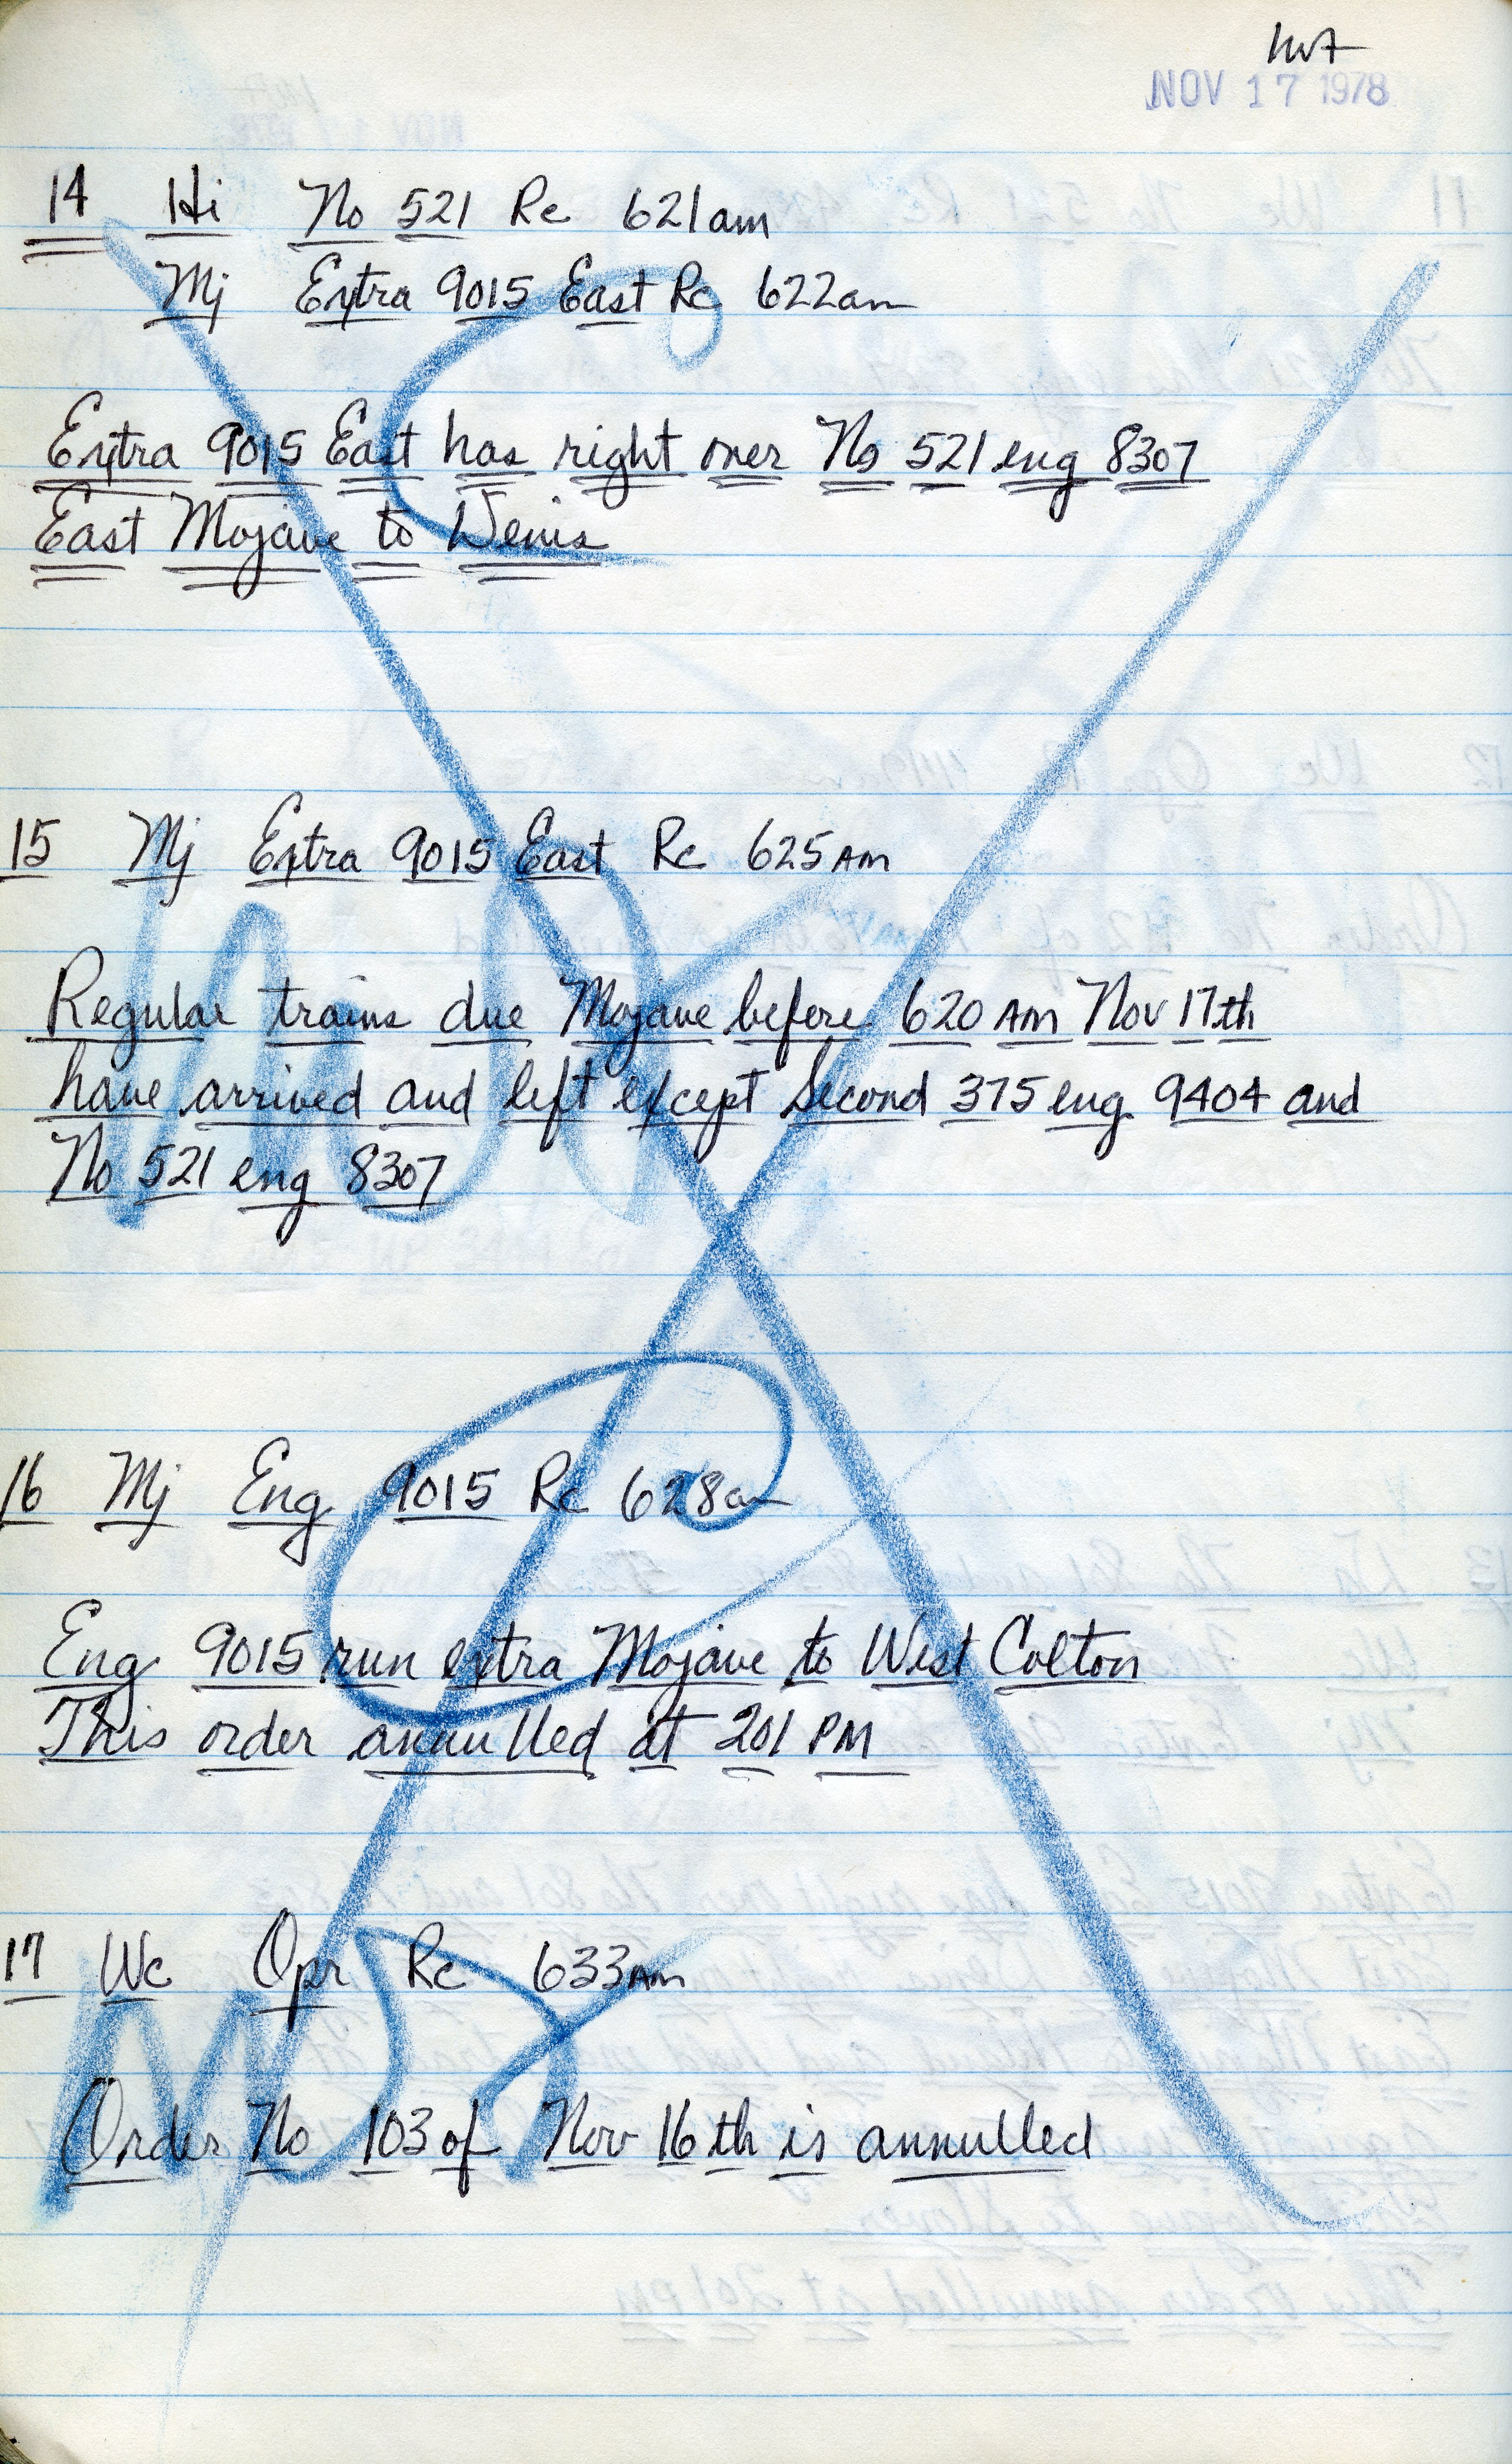 NOV 17 1978
14 Hi No 521 Rc 621am
Mj Extra 9015 East Rc 622am
Extra 9015 East has right over No 521 eng 8307
East Mojave to Denis
15 Mj Extra 9015 East Rc 625AM
Regular trains due Mojave before 620 AM Nov 17th
have arrived and left except Second 375 eng 9404 and
No 521 eng 8307
16 Mj Eng 9015 Rc 628am
Eng 9015 run extra Mojave to West Colton
This order annulled at 201 PM
17 Wc Opr Rc 633AM
Order No 103 of Nov 16th is annulled